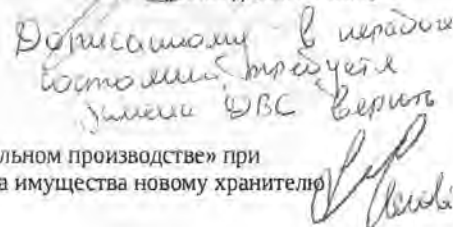 Дописанному в нерабоче
состоянии требуется
замена ДВС верить
льном производстве» при
а имущества новому хранителю